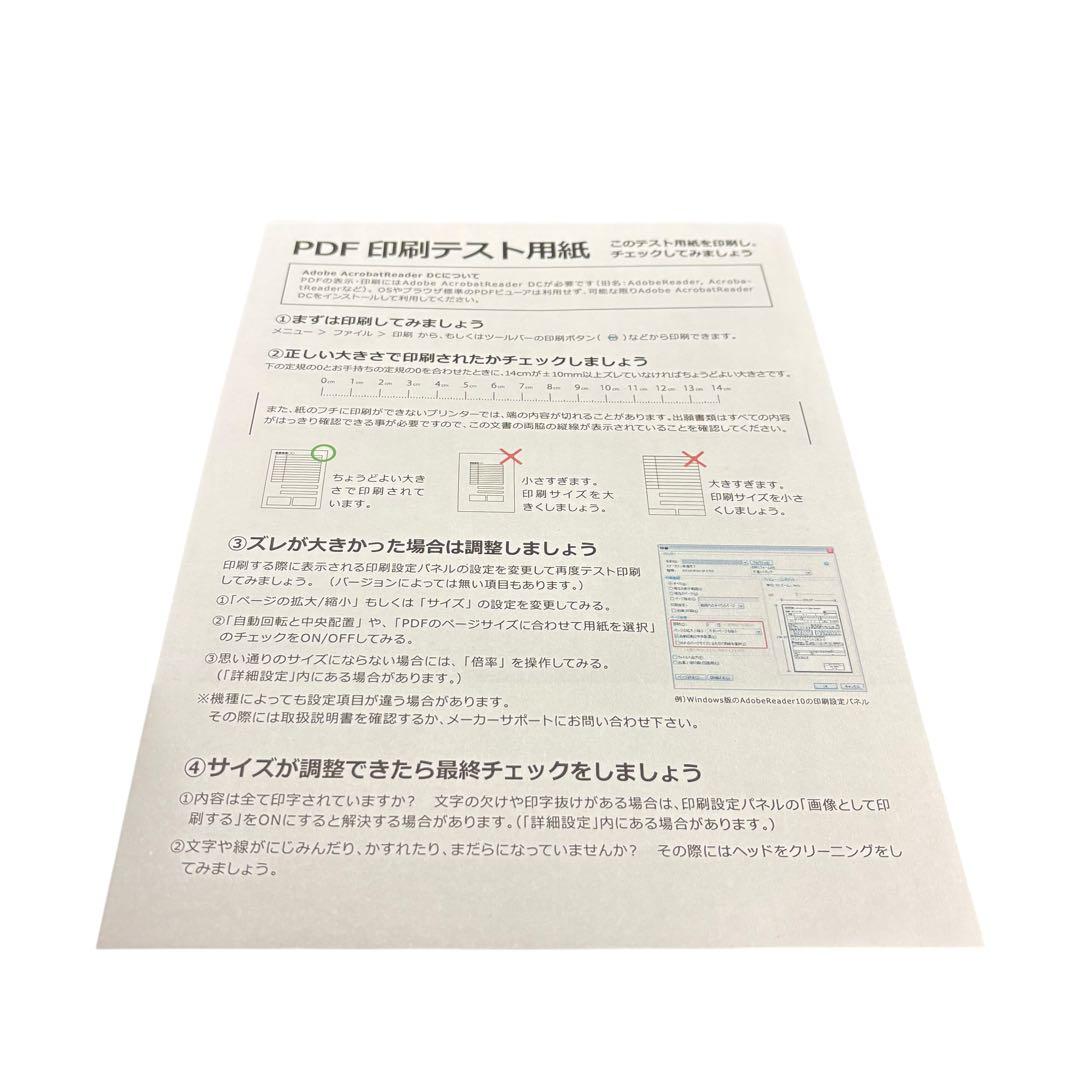 PDF 印刷テスト用紙
このテスト用紙を印刷し。
チェックしてみましょう
Adobe AcrobatReader DCについて
PDFの表示・印刷にはAdobe AcrobatReader DCが必要です(旧名:AdobeReader, Acroba-
tReaderなど)。OSやブラウザ標準のPDFビューアは利用せず、可能な限りAdobe AcrobatReader
DCをインストールして利用してください。
①まずは印刷してみましょう
メニュー > ファイル > 印刷 から、もしくはツールバーの印刷ボタン( )などから印刷できます。
②正しい大きさで印刷されたかチェックしましょう
下の定規の0とお手持ちの定規の0を合わせたときに、14cmが±10mm以上ズレていなければちょうどよい大きさです。
0cm 1cm 2cm 3cm 4cm 5cm 6cm 7cm 8cm 9cm 10cm 11cm 12cm 13cm 14cm
また、紙のフチに印刷ができないプリンターでは、端の内容が切れることがあります。出願書類はすべての内容
がはっきり確認できる事が必要ですので、この文書の両脇の縦線が表示されていることを確認してください。
ちょうどよい大き
さで印刷されて
います。
小さすぎます。
印刷サイズを大
きくしましょう。
大きすぎます。
印刷サイズを小さ
くしましょう。
③ズレが大きかった場合は調整しましょう
印刷する際に表示される印刷設定パネルの設定を変更して再度テスト印刷
してみましょう。 (バージョンによっては無い項目もあります。)
①「ページの拡大/縮小」もしくは「サイズ」の設定を変更してみる。
②「自動回転と中央配置」や、「PDFのページサイズに合わせて用紙を選択」
のチェックをON/OFFしてみる。
③思い通りのサイズにならない場合には、「倍率」を操作してみる。
(「詳細設定」内にある場合があります。)
※機種によっても設定項目が違う場合があります。
その際には取扱説明書を確認するか、メーカーサポートにお問い合わせ下さい。
例)Windows版のAdobeReader10の印刷設定パネル
④サイズが調整できたら最終チェックをしましょう
①内容は全て印字されていますか? 文字の欠けや印字抜けがある場合は、印刷設定パネルの「画像として印
刷する」をONにすると解決する場合があります。(「詳細設定」内にある場合があります。)
②文字や線がにじみんだり、かすれたり、まだらになっていませんか? その際にはヘッドをクリーニングをし
てみましょう。